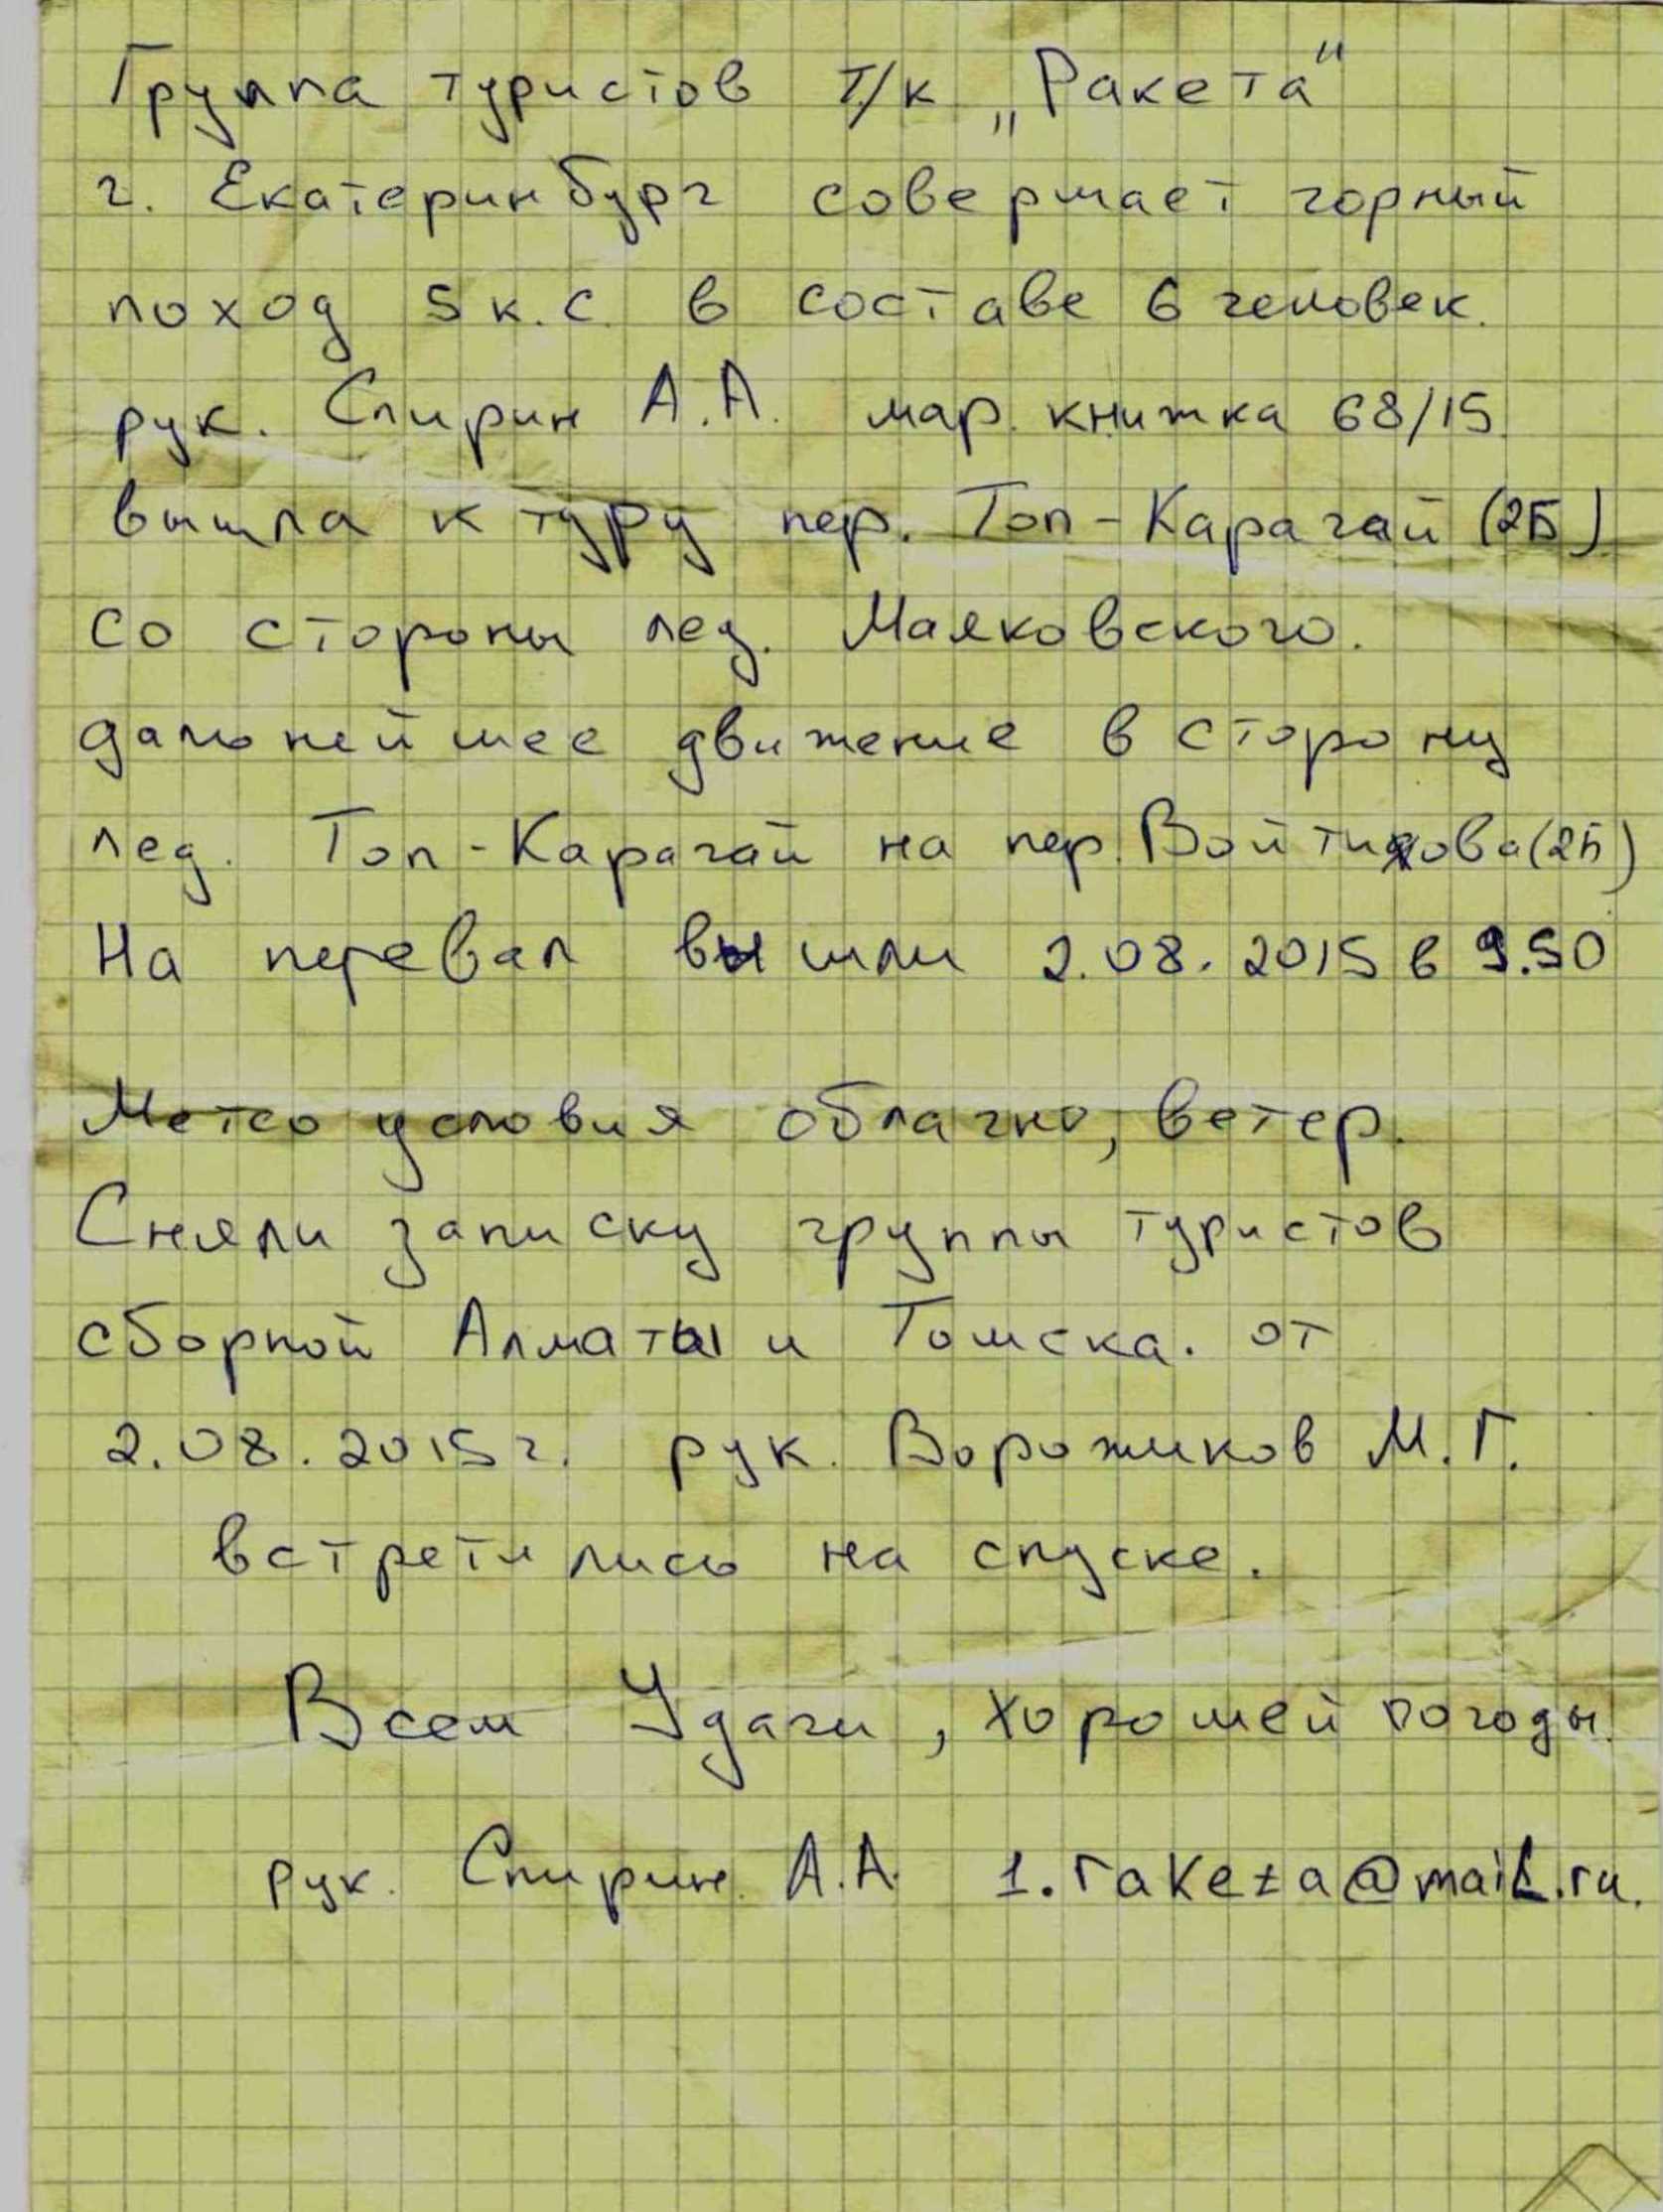 Группа туристов т/к „Ракета"
г. Екатеринбург совершает горный
поход 5 к.с. в составе 6 человек.
рук. Спирин А.А. мар. книжка 68/15
вышла к туру пер. Топ-Карагай (2Б)
со стороны лед. Маяковского.
дальнейшее движение в сторону
лед. Топ-Карагай на пер. Войтикова (2Б)
На перевал вышли 2.08.2015 в 9.50
Метео условия облачно, ветер.
Сняли записку группы туристов
сборной Алматы и Томска. от
2.08.2015 г. рук. Ворожиков М.Г.
встретились на спуске.
Всем Удачи, хорошей погоды.
рук. Спирин А.А. 1.raketa@mail.ru.